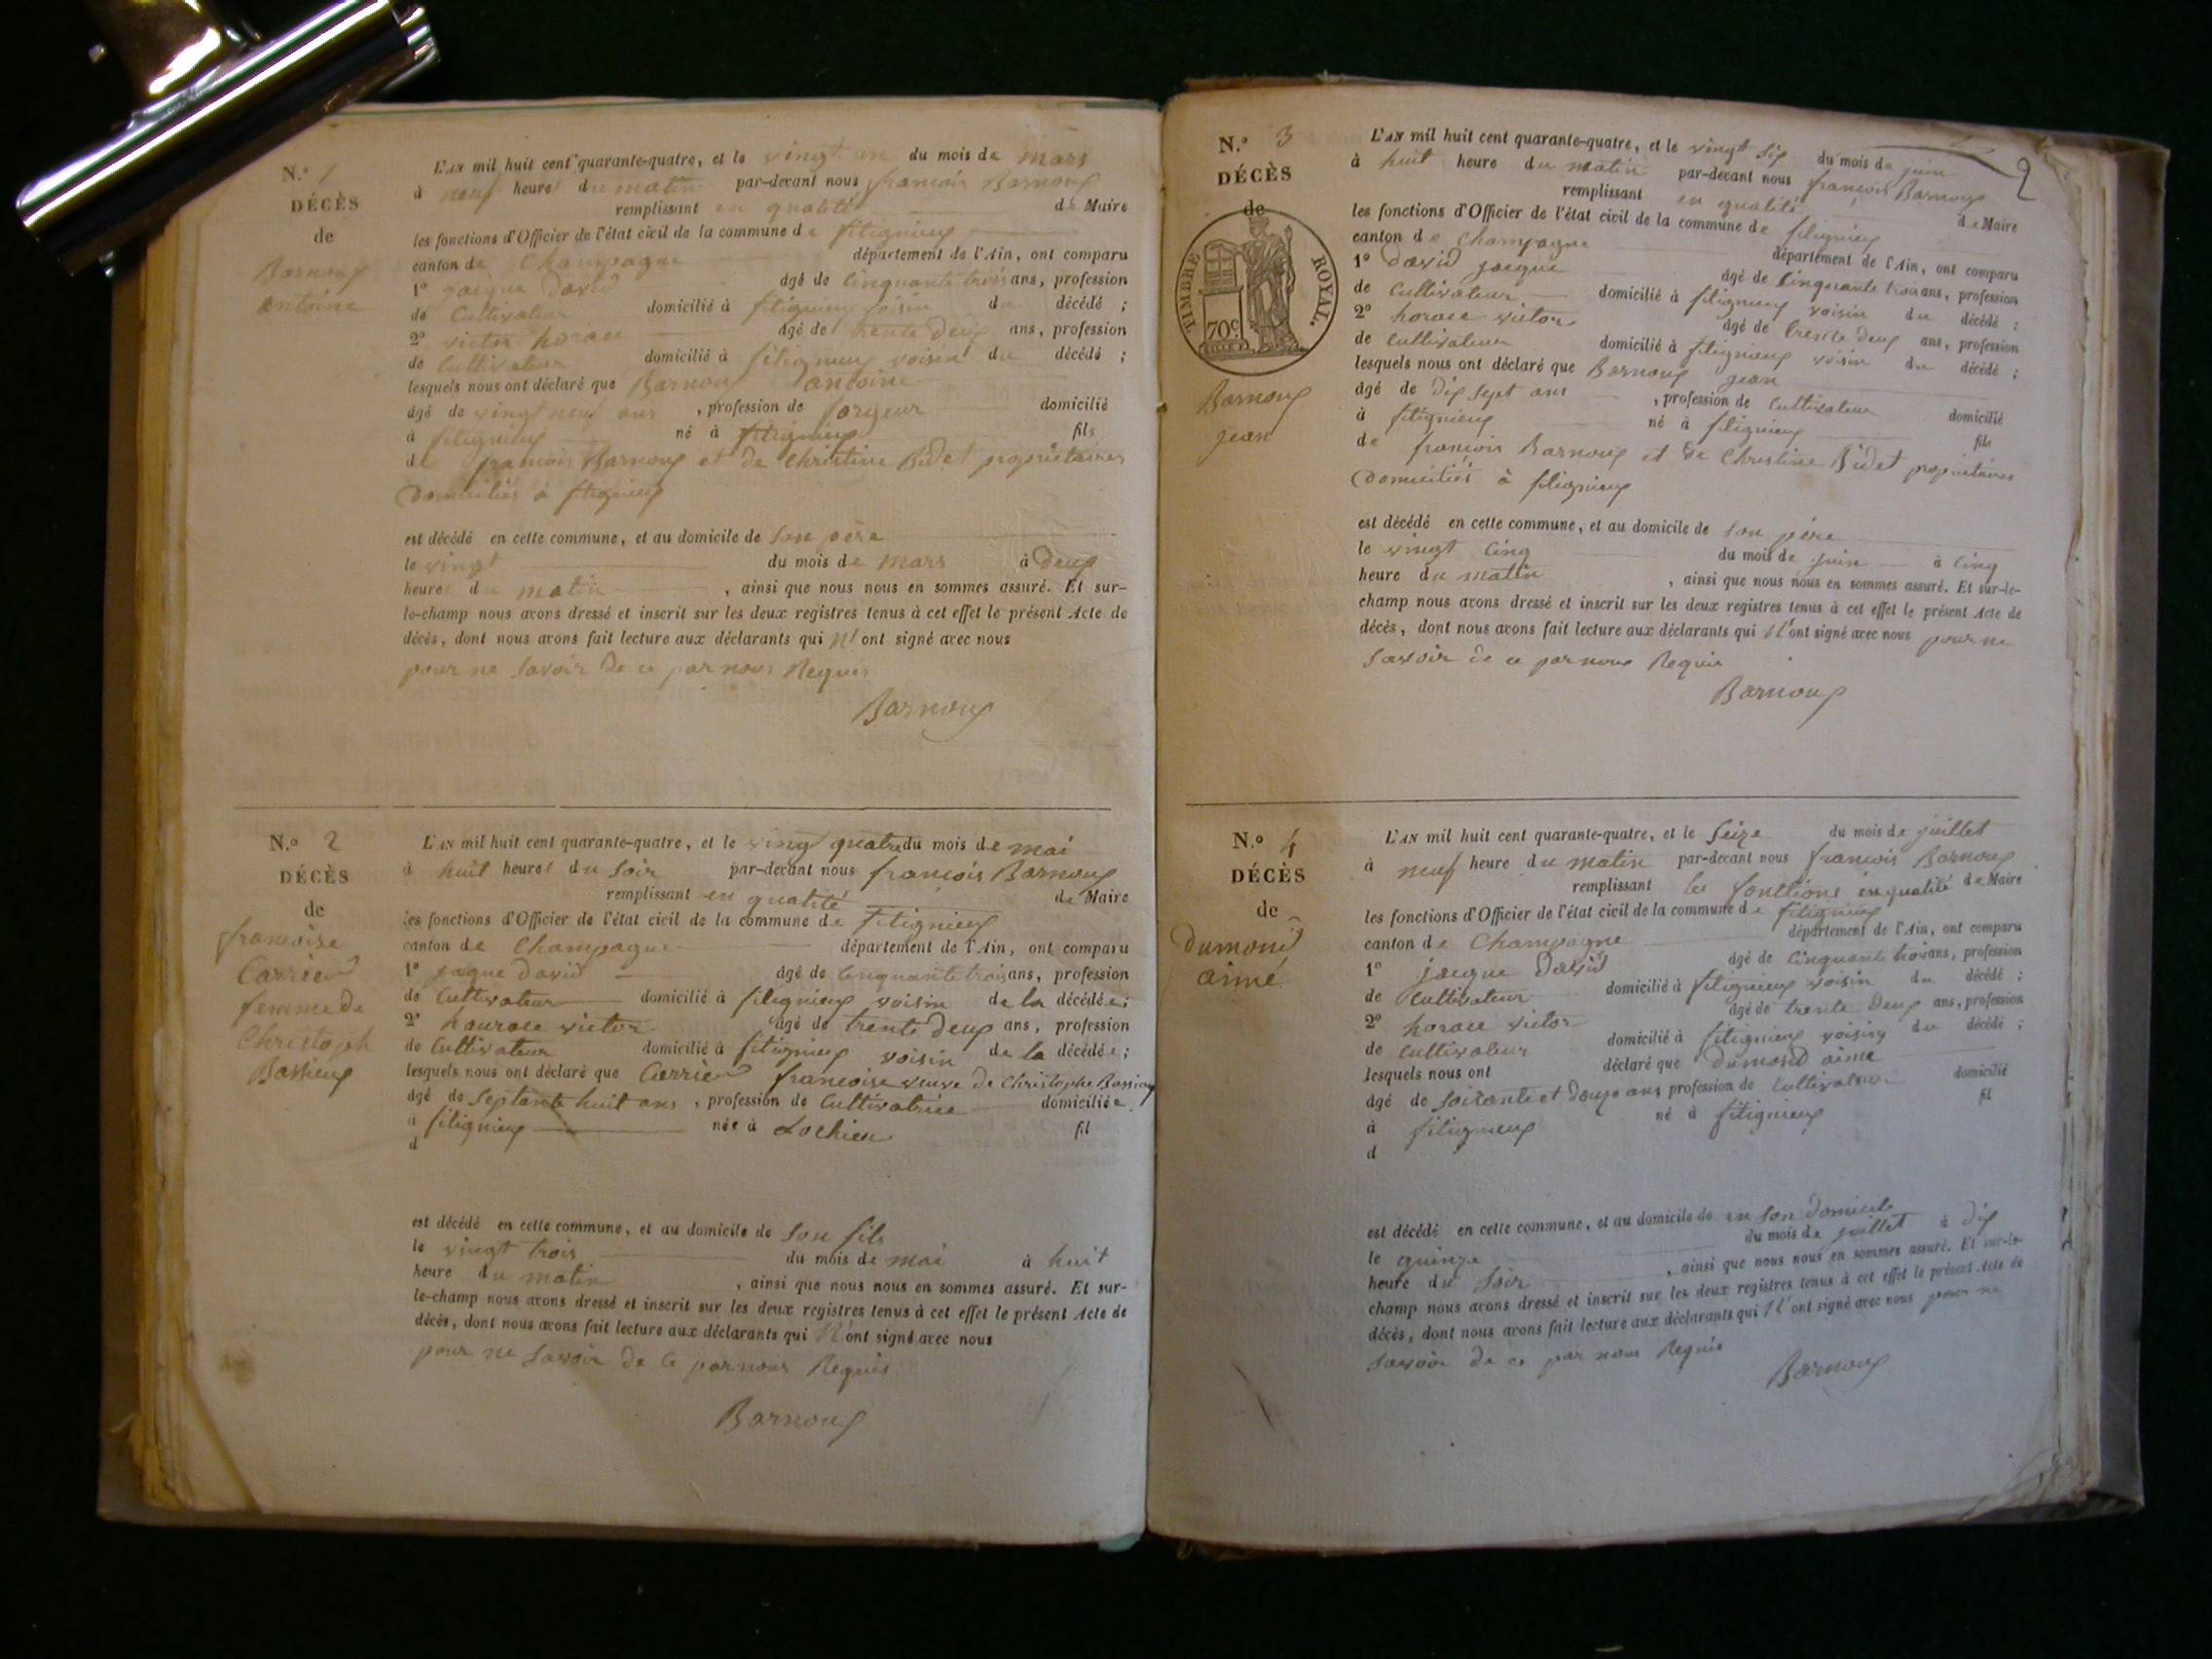 N.o 1
DÉCÈS
de
Barnoux
antoine
L'AN mil huit cent quarante-quatre, et le vingt un du mois de mars
à neuf heures du matin par-devant nous francois Barnoux
remplissant en qualité de Maire
les fonctions d'Officier de l'état civil de la commune de fitignieux
canton de Champagne département de l'Ain, ont comparu
1o jacque David âgé de Cinquante trois ans, profession
de Cultivateur domicilié à fitignieux voisin du décédé ;
2o victor horace âgé de trente deux ans, profession
de Cultivateur domicilié à fitignieux voisin du décédé ;
lesquels nous ont déclaré que Barnoux antoine
âgé de vingt neuf ans , profession de forgeur domicilié
à fitignieux né à fitignieux fils
de francois Barnoux et de Christine Bidet propriétaires
Domiciliés à fitignieux
est décédé en cette commune, et au domicile de Son père
le vingt du mois de mars à deux
heures du matin , ainsi que nous nous en sommes assuré. Et sur-
le-champ nous avons dressé et inscrit sur les deux registres tenus à cet effet le présent Acte de
décès, dont nous avons fait lecture aux déclarants qui N'ont signé avec nous
pour ne Savoir de ce par nous Requis
Barnoux
N.o 2
DÉCÈS
de
francoise
Carrier
femme de
Christoph
Bassieux
L'AN mil huit cent quarante-quatre, et le vingt quatre du mois de mai
à huit heures du Soir par-devant nous francois Barnoux
remplissant en qualité de Maire
les fonctions d'Officier de l'état civil de la commune de fitignieux
canton de Champagne département de l'Ain, ont comparu
1o jaque David âgé de Cinquante trois ans, profession
de Cultivateur domicilié à fitignieux voisin de la décédée ;
2o hourace victor âgé de trente deux ans, profession
de Cultivateur domicilié à fitignieux voisin de la décédée ;
lesquels nous ont déclaré que Carrier francoise veuve de Christophe Bassieux
âgé de Septante huit ans , profession de Cultivatrice domiciliée
à fitignieux née à Lochieu fil
d
est décédé en cette commune, et au domicile de Son fils
le vingt trois du mois de mai à huit
heure du matin , ainsi que nous nous en sommes assuré. Et sur-
le-champ nous avons dressé et inscrit sur les deux registres tenus à cet effet le présent Acte de
décès, dont nous avons fait lecture aux déclarants qui N'ont signé avec nous
pour ne Savoir de Ce par nous Requis
Barnoux
2
N.o 3
DÉCÈS
de
TIMBRE ROYAL.
70c
Barnoux
jean
L'AN mil huit cent quarante-quatre, et le vingt Six du mois de juin
à huit heure du matin par-devant nous francois Barnoux
remplissant en qualité de Maire
les fonctions d'Officier de l'état civil de la commune de fitignieux
canton de Champagne département de l'Ain, ont comparu
1o David jacque âgé de Cinquante trois ans, profession
de Cultivateur domicilié à fitignieux voisin du décédé ;
2o horace victor âgé de trente deux ans, profession
de Cultivateur domicilié à fitignieux voisin du décédé ;
lesquels nous ont déclaré que Barnoux jean
âgé de dix Sept ans , profession de Cultivateur domicilié
à fitignieux né à fitignieux fils
de francois Barnoux et de Christine Bidet propriétaires
Domiciliés à fitignieux
est décédé en cette commune, et au domicile de Son père
le vingt Cinq du mois de juin à Cinq
heure du matin , ainsi que nous nous en sommes assuré. Et sur-le-
champ nous avons dressé et inscrit sur les deux registres tenus à cet effet le présent Acte de
décès, dont nous avons fait lecture aux déclarants qui N'ont signé avec nous pour ne
Savoir de ce par nous Requis
Barnoux
N.o 4
DÉCÈS
de
Dumond
aimé
L'AN mil huit cent quarante-quatre, et le Seize du mois de juillet
à neuf heure du matin par-devant nous francois Barnoux
remplissant les fonctions en qualité de Maire
les fonctions d'Officier de l'état civil de la commune de fitignieux
canton de Champagne département de l'Ain, ont comparu
1o jacque David âgé de Cinquante trois ans, profession
de Cultivateur domicilié à fitignieux voisin du décédé ;
2o horace victor âgé de trente Deux ans, profession
de Cultivateur domicilié à fitignieux voisin du décédé ;
lesquels nous ont déclaré que Dumond aimé
âgé de Soixante et douze ans profession de Cultivateur domicilié
à fitignieux né à fitignieux fil
d
est décédé en cette commune, et au domicile de en Son Domicile
le quinze du mois de juillet à dix
heure du Soir , ainsi que nous nous en sommes assuré. Et sur-le-
champ nous avons dressé et inscrit sur les deux registres tenus à cet effet le présent Acte de
décès, dont nous avons fait lecture aux déclarants qui N'ont signé avec nous pour ne
Savoir de ce par nous Requis
Barnoux